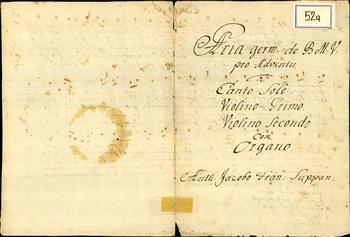 52a
Aria germ. de B M V
pro Adventu
a
Canto Solo
Violino Primo
Violino Secondo
Con
Organo
Auth. Jacobo Fran. Suppan.